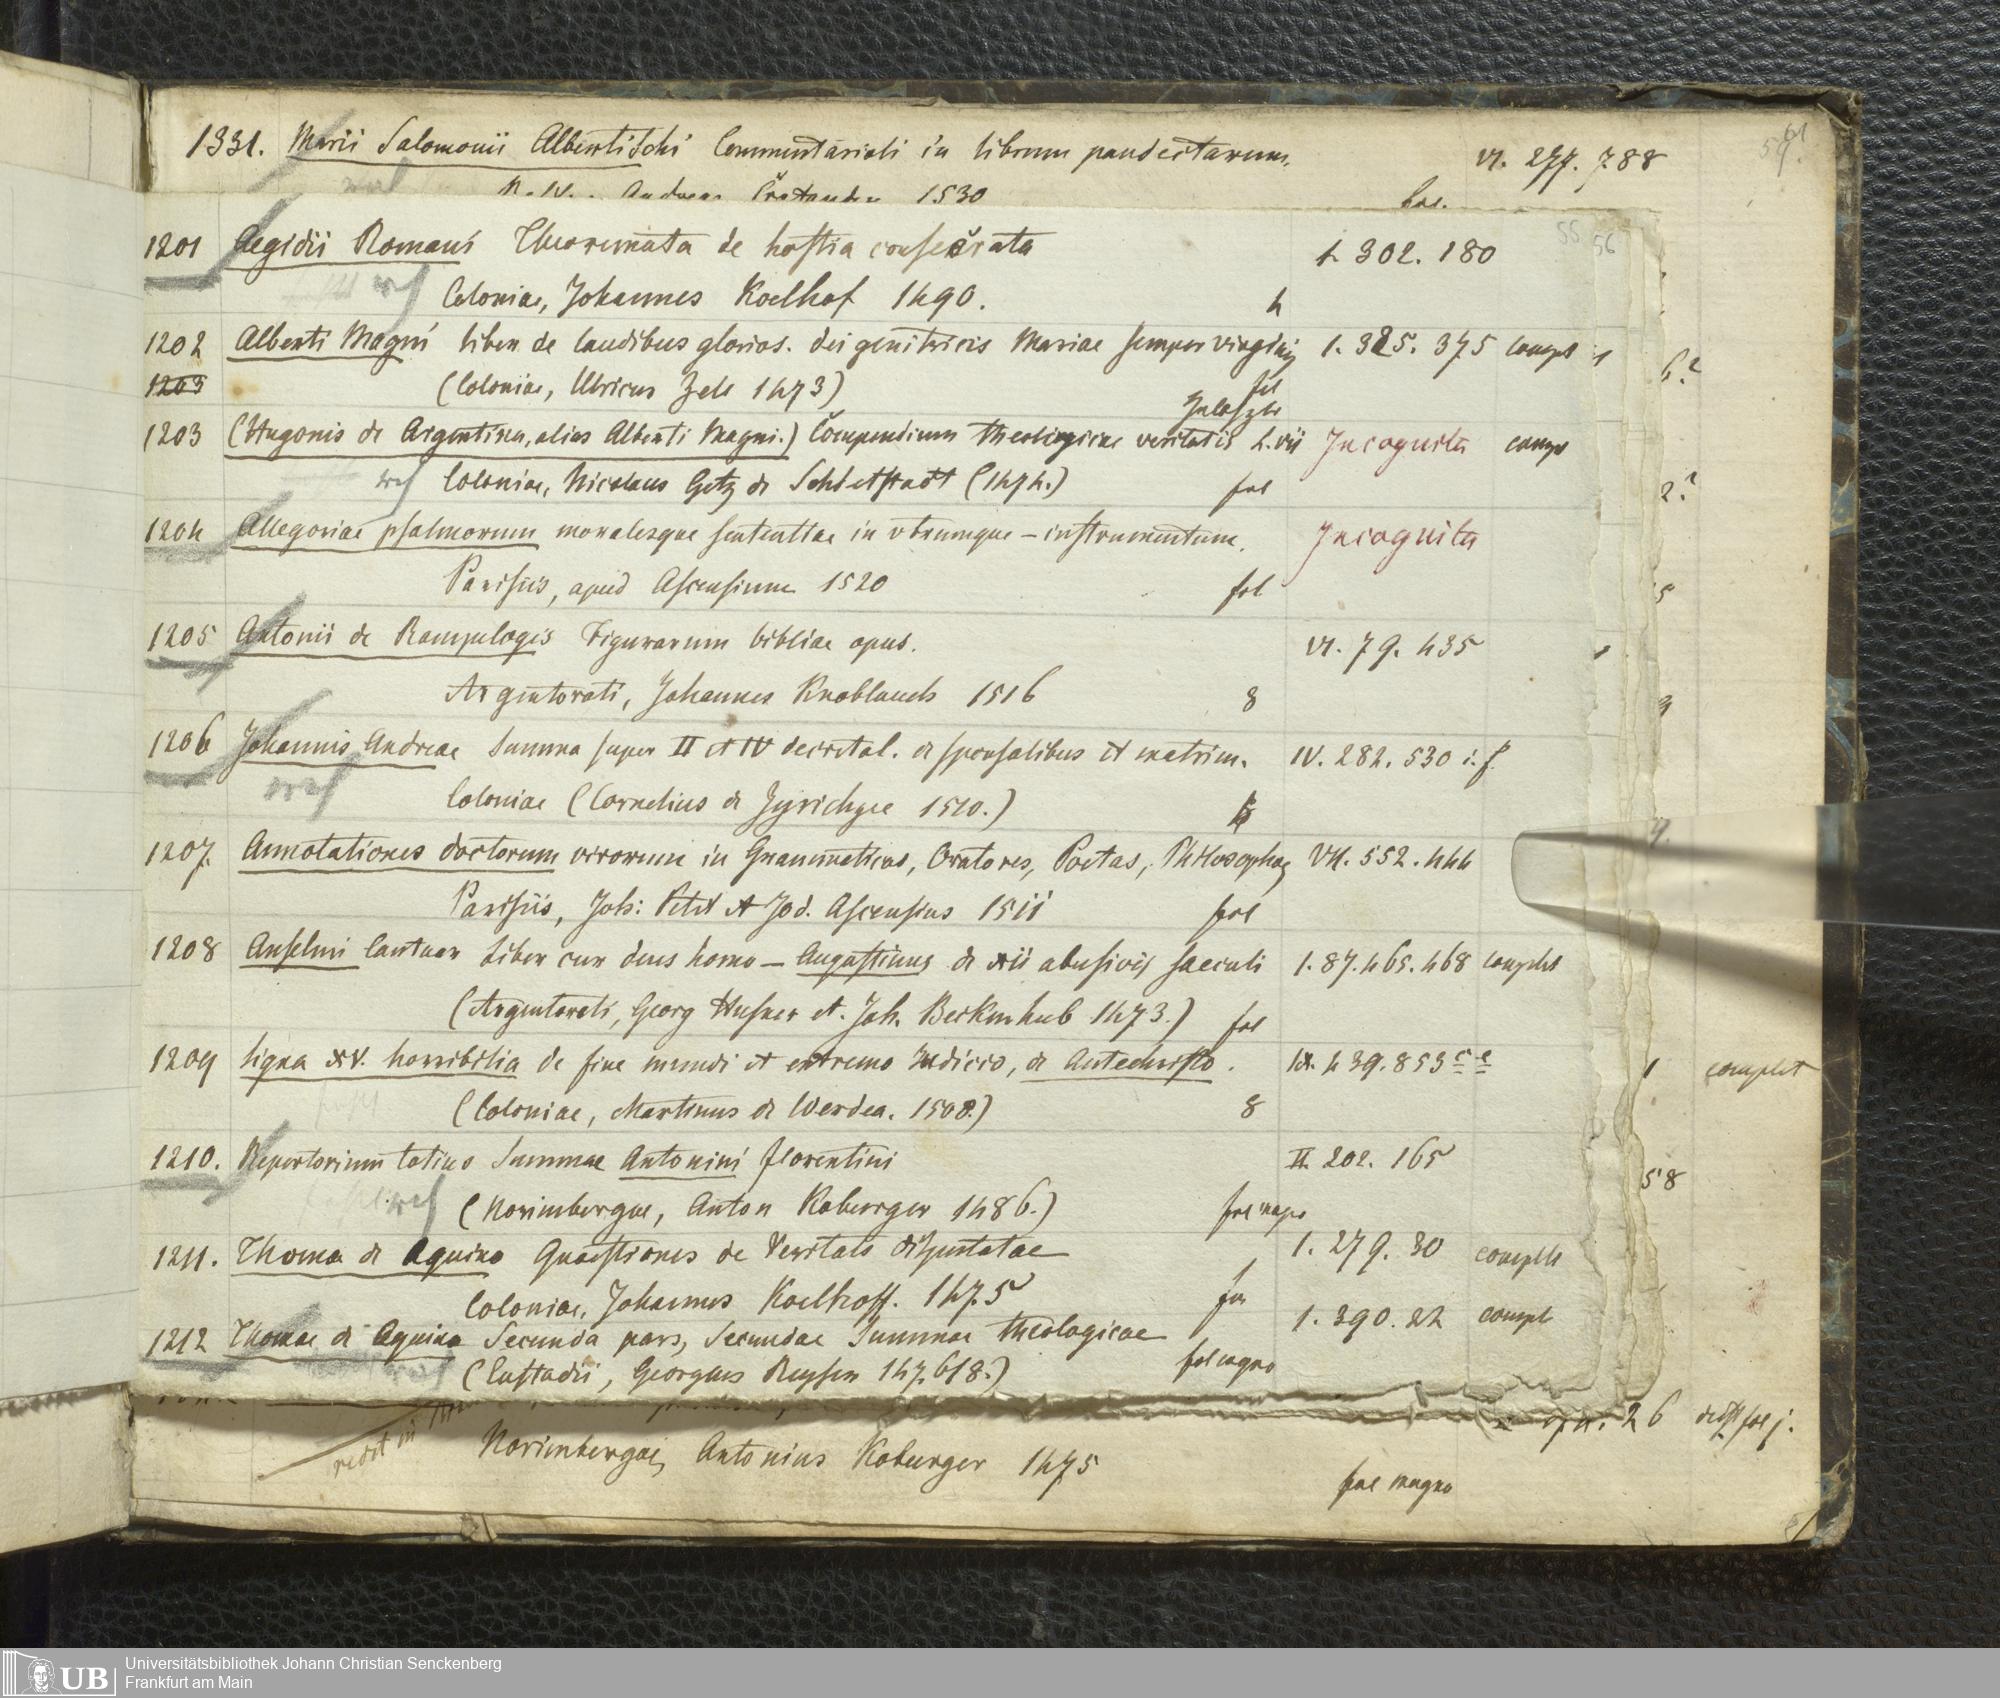 1331. Marii Salomonii Albertischi Commentarioli in librum pandectarum. VI. 277. 788
Andreas Cratander 1530 fol.
55 56
1201 Aegidii Romani Theoremata de hostia consecrata 1. 302. 180
Coloniae, Johannes Koelhof 1490. 4
1202 Alberti Magni liber de laudibus glorios. dei genitricis Mariae semper virginis 1. 325. 375 compl
1203 (Coloniae, Ulricus Zell 1473) fol
1203 (Hugonis de Argentina, alias Alberti Magni.) Compendium theologicae veritatis L. vii Incognita compl
Coloniae, Nicolaus Götz de Schletstadt (1474.) fol
1204 Allegoriae psalmorum moralesque sententiae in utrumque - instrumentum. Incognita
Parisiis, apud Ascensium 1520 fol
1205 Antonii de Rampelogis Figurarum bibliae opus. VI. 79. 435
Argentorati, Johannes Knoblauch 1516 8
1206 Johannis Andreae Summa super II et IV decretal. de sponsalibus et matrim. IV. 282. 530 i. f.
Coloniae (Cornelius de Zyrichzee 1510.)
1207. Annotationes doctorum virorum in Grammaticos, Oratores, Poetas, Philosophos VII. 552. 444
Parisiis, Joh: Petit et Jod. Ascensius 1511 fol
1208 Anselmi Cantuar Liber cur deus homo - Augustinus de xii abusivis saeculi 1. 87. 465. 468 complet
(Argentorati, Georg Husner et. Joh. Beckenhub 1473.) fol
1209 Signa XV. horribilia de fine mundi et extremo Judicio, de Antechristo. IX. 439. 853
(Coloniae, Martinus de Werdea. 1508.) 8
1 complet
1210. Repertorium totius Summae Antonini florentini II. 202. 165
(Norimbergae, Anton Koberger 1486.) fol magno
58
1211. Thoma de Aquino Quaestiones de Veritate disputatae 1. 279. 30 complet
Coloniae, Johannes Koelhoff. 1475 fol
1212 Thomae de Aquino Secunda pars, Secundae Summae theologicae 1. 290. 22 compl
(Custadii, Georgius Reyser 147.6/8.) fol magno
26
redit in
Norimbergae, Antonius Koburger 1475 fol magno
UB Universitätsbibliothek Johann Christian Senckenberg
Frankfurt am Main